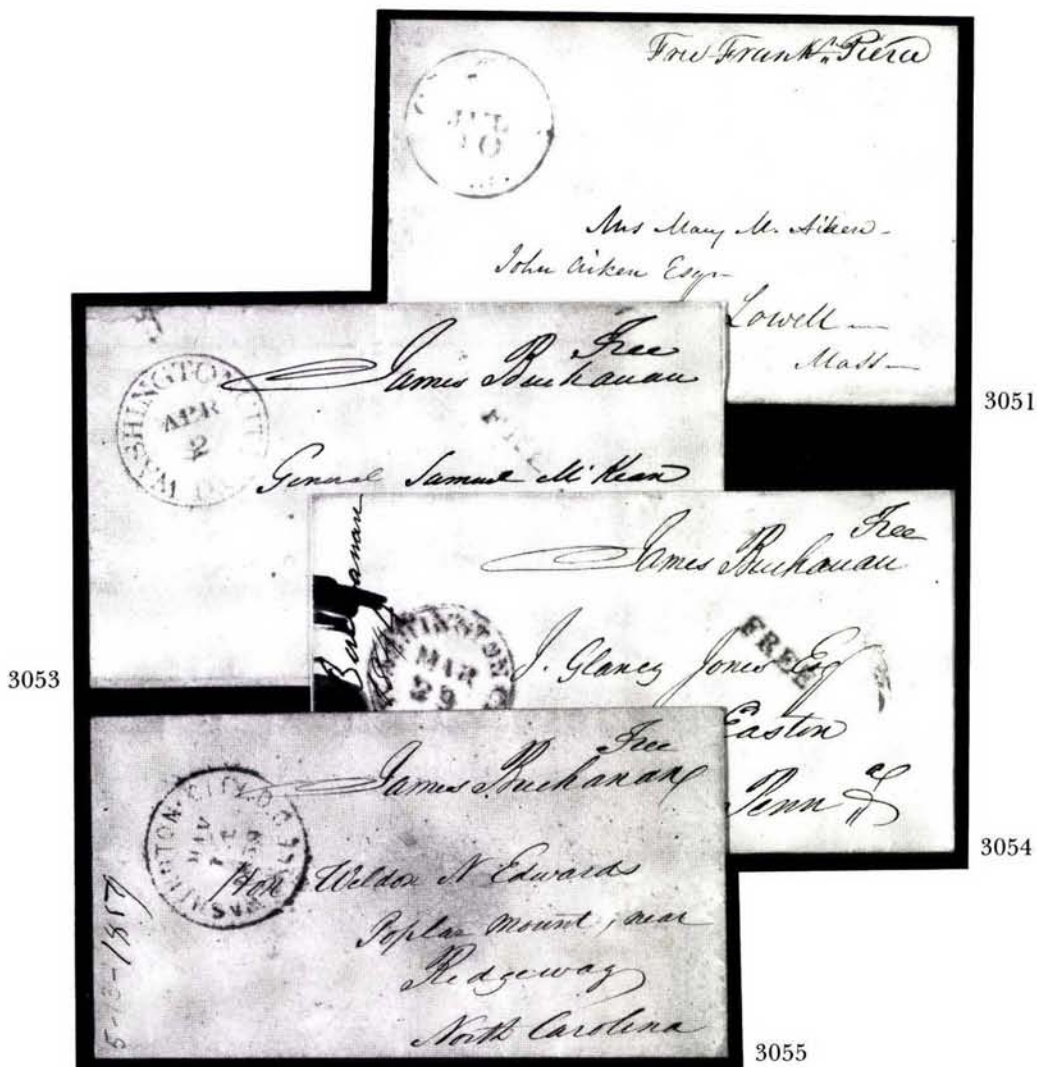 Free Frank,, Pierce
JUL
10
Mrs Mary M. Aiken-
John Aiken Esqr-
Lowell —
Mass —
3051
Free
James Buchanan
WASHINGTON CITY
APR
2
FREE
General Samuel McKean
3053
Free
James Buchanan
Buchanan
WASHINGTON C
MAR
29
FREE
J. Glancy Jones Esq
Easton
Penn a
3054
Free
James Buchanan
WASHINGTON CITY D.C.
MAY
Hon Weldon N Edwards
Poplar Mount, near
Ridgeway
North Carolina
3055